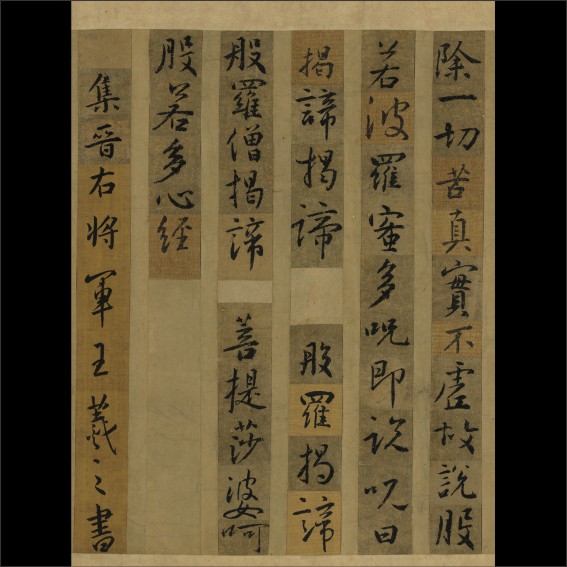 除一切苦真實不虛故說般
若波羅蜜多呪即說呪曰
揭諦揭諦 般羅揭諦
般羅僧揭諦 菩提莎婆呵
般若多心経
集晉右將軍王羲之書